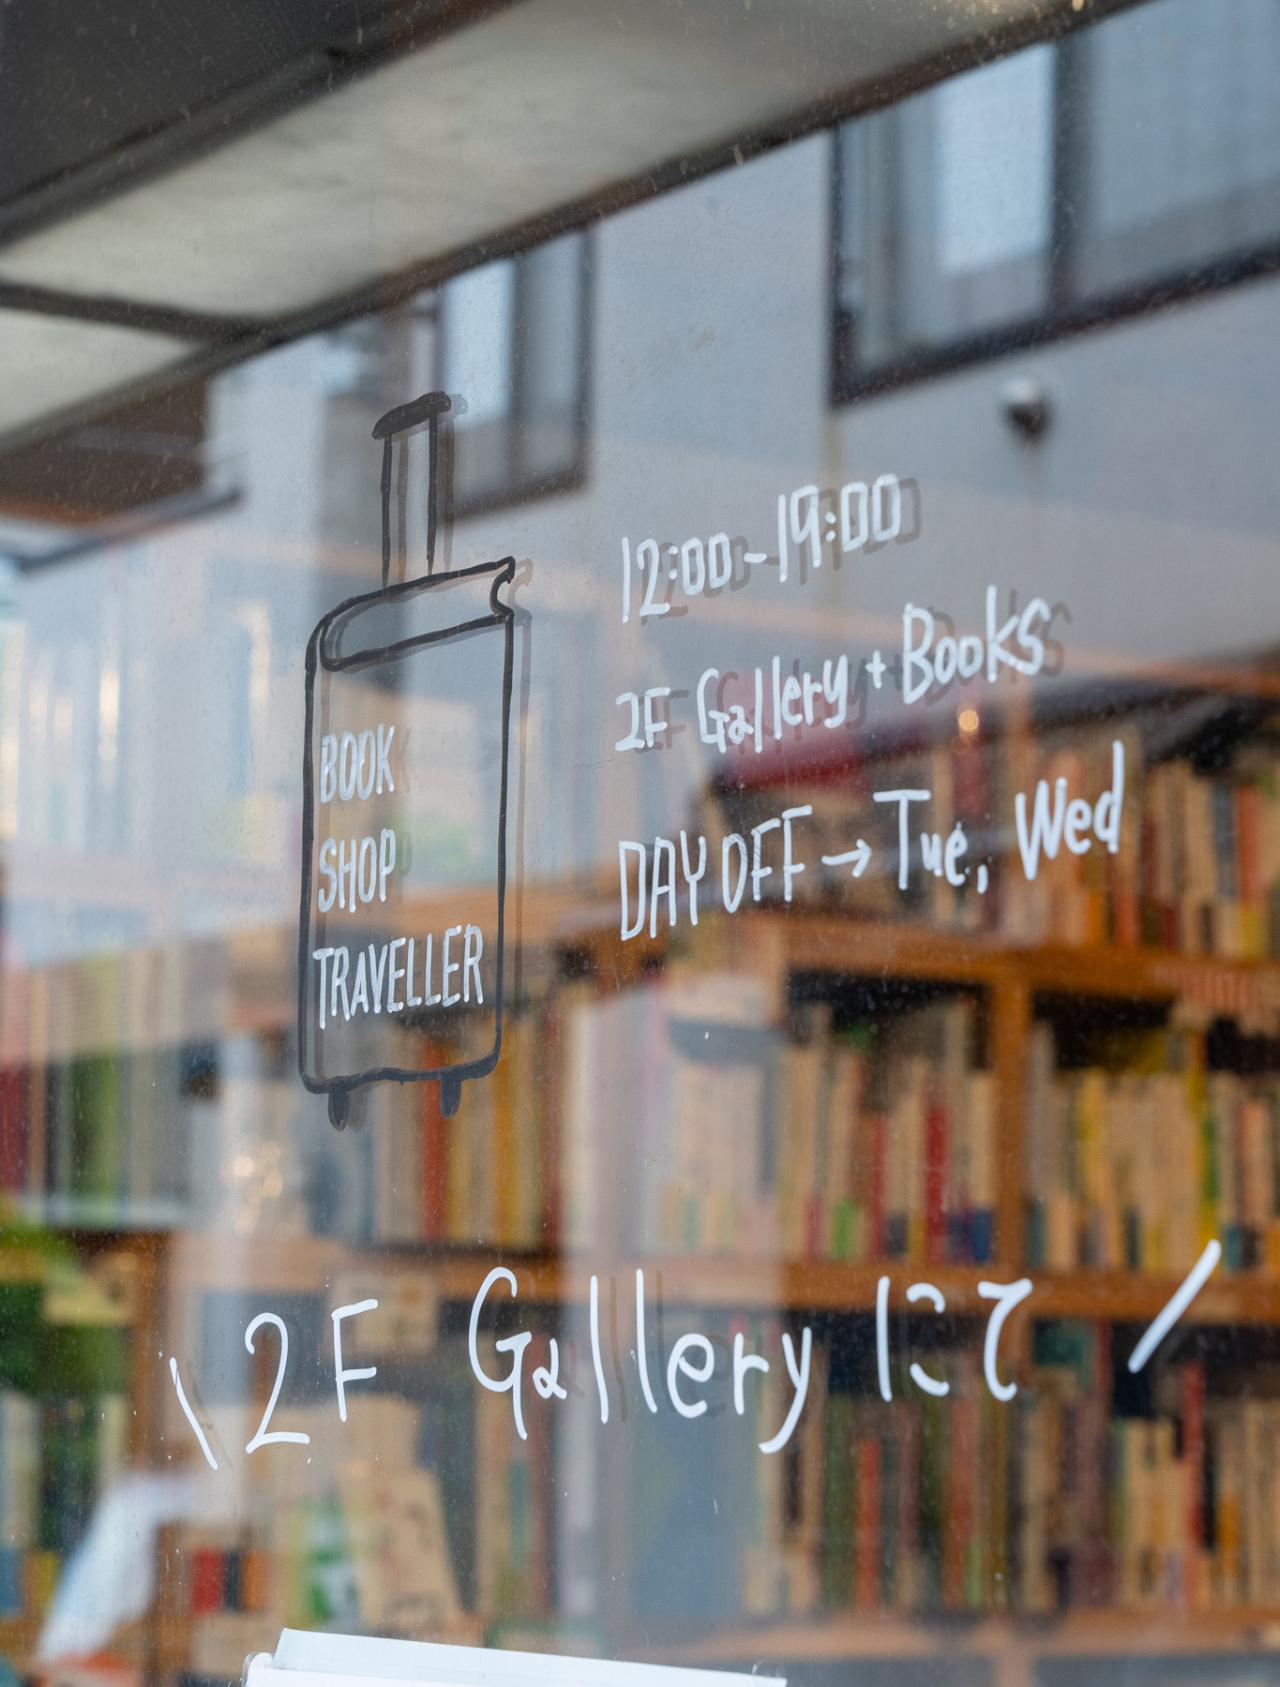 BOOK
SHOP
TRAVELLER
12:00-19:00
2F Gallery + Books
DAY OFF → Tue, Wed
\ 2F Gallery にて /